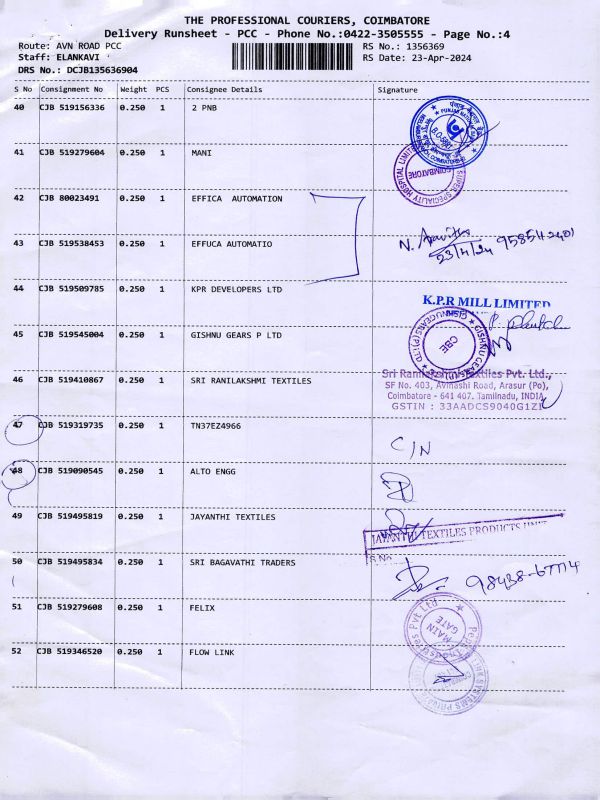 THE PROFESSIONAL COURIERS, COIMBATORE
Delivery Runsheet - PCC - Phone No.:0422-3505555 - Page No.:4
Route: AVN ROAD PCC
RS No.: 1356369
Staff: ELANKAVI
RS Date: 23-Apr-2024
DRS No.: DCJB135636904
S No Consignment No Weight PCS Consignee Details Signature
40 CJB 519156336 0.250 1 2 PNB
41 CJB 519279604 0.250 1 MANI
SUPER SPECIALITY HOSPITAL LIMITED
COIMBATORE
42 CJB 80023491 0.250 1 EFFICA AUTOMATION
43 CJB 519538453 0.250 1 EFFUCA AUTOMATIO
N.
23/4/24
44 CJB 519509785 0.250 1 KPR DEVELOPERS LTD
K.P.R MILL LIMITED
45 CJB 519545004 0.250 1 GISHNU GEARS P LTD
GISHNU GEARS (P) LTD
CBE
46 CJB 519410867 0.250 1 SRI RANILAKSHMI TEXTILES
Sri Ranilakshmi Textiles Pvt. Ltd.,
SF No. 403, Avinashi Road, Arasur (Po),
Coimbatore - 641 407. Tamilnadu, INDIA
GSTIN : 33AADCS9040G1ZL
47 CJB 519319735 0.250 1 TN37EZ4966
C/N
48 CJB 519090545 0.250 1 ALTO ENGG
49 CJB 519495819 0.250 1 JAYANTHI TEXTILES
JAYANTHI TEXTILES PRODUCTS UNIT
S.No
50 CJB 519495834 0.250 1 SRI BAGAVATHI TRADERS
98438-67774
51 CJB 519279608 0.250 1 FELIX
Pvt Ltd
MAIN
GATE
52 CJB 519346520 0.250 1 FLOW LINK